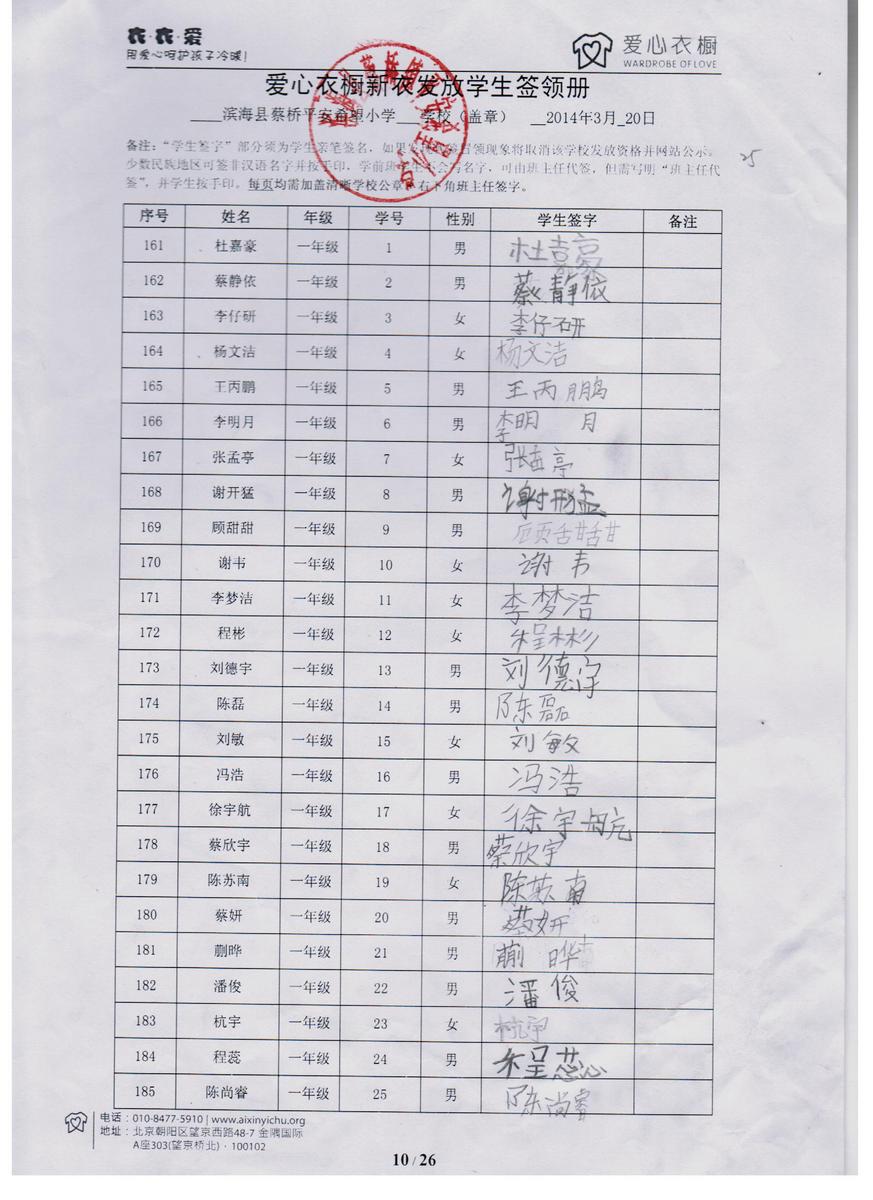 衣·衣·爱
用爱心呵护孩子冷暖!
爱心衣橱
WARDROBE OF LOVE
爱心衣橱新衣发放学生签领册
____滨海县蔡桥平安希望小学___学校（盖章） __2014年3月_20日
备注："学生签字"部分须为学生亲笔签名，如果发现冒领现象将取消该学校发放资格并网站公示。
少数民族地区可签非汉语名字并按手印，学前班学生不会写名字，可由班主任代答，但需写明"班主任代
签"，并学生按手印。每页均需加盖清晰学校公章及右下角班主任签字。
25
序号 姓名 年级 学号 性别 学生签字 备注
161 杜嘉豪 一年级 1 男 杜嘉豪
162 蔡静依 一年级 2 男 蔡静依
163 李仔研 一年级 3 女 李仔研
164 杨文洁 一年级 4 女 杨文洁
165 王丙鹏 一年级 5 男 王丙鹏
166 李明月 一年级 6 男 李明月
167 张孟亭 一年级 7 女 张孟亭
168 谢开猛 一年级 8 男 谢开猛
169 顾甜甜 一年级 9 男 顾甜甜
170 谢韦 一年级 10 女 谢韦
171 李梦洁 一年级 11 女 李梦洁
172 程彬 一年级 12 女 程彬
173 刘德宇 一年级 13 男 刘德宇
174 陈磊 一年级 14 男 陈磊
175 刘敏 一年级 15 女 刘敏
176 冯浩 一年级 16 男 冯浩
177 徐宇航 一年级 17 女 徐宇航
178 蔡欣宇 一年级 18 男 蔡欣宇
179 陈苏南 一年级 19 女 陈苏南
180 蔡妍 一年级 20 男 蔡妍
181 蒯晔 一年级 21 男 蒯晔
182 潘俊 一年级 22 男 潘俊
183 杭宇 一年级 23 女 杭宇
184 程蕊 一年级 24 男 程蕊
185 陈尚睿 一年级 25 男 陈尚睿
电话：010-8477-5910 | www.aixinyichu.org
地址：北京朝阳区望京西路48-7 金隅国际
A座303(望京桥北)·100102
10 / 26